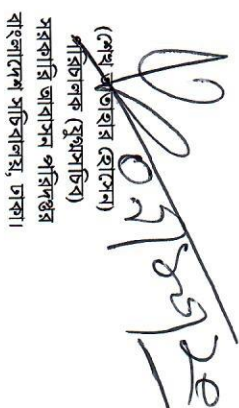 (শেখ আতাহার হোসেন)
পরিচালক (যুগ্মসচিব)
সরকারি আবাসন পরিদপ্তর
বাংলাদেশ সচিবালয়, ঢাকা।